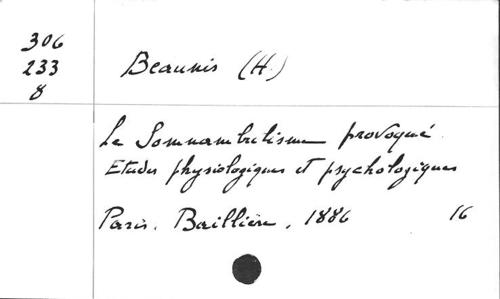 306
233
8
Beaunis (H.)
Le Somnambulisme provoqué.
Etudes physiologiques et psychologiques
Paris, Baillière, 1886 16